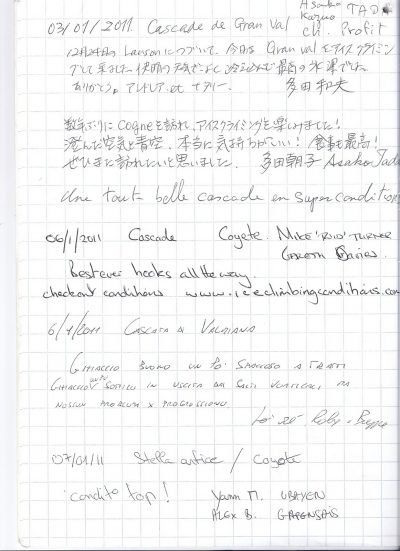 03/01/2011. Cascade de Gran Val Asako Kazuo TADA
ch. Profit
12月2日の Lauson につづいて、今日は Gran val をアイスクライミング
して来ました。
ありがとう。 et 多田和夫
数年ぶりに Cogne を訪れ、アイスクライミングを楽しみました!
澄んだ空気と青空、本当に気持ちがいい! 食事も最高!
ぜひまた訪れたいと思いました。 多田朝子 Asako Tada
Une tout belle cascade en super conditions
06/1/2011 Cascade Coyote. MIKE 'RIO' TURNER
GARETH DAVIES
Best ever hooks all the way.
check out conditions www.iceclimbingconditions.com
6/1/2011 CASCATA DI VALMIANA
GHIACCIO BUONO UN PÒ SPACCOSO A TRATTI
GHIACCIO SOTTILE IN USCITA DAI SALTI VERTICALI, MA
NESSUN PROBLEMA X PROGRESSIONE.
Roby
07/01/11 Stella artice / Coyote
condits top! Yann M. UBAYEN
ALEX B. GAPENSAIS